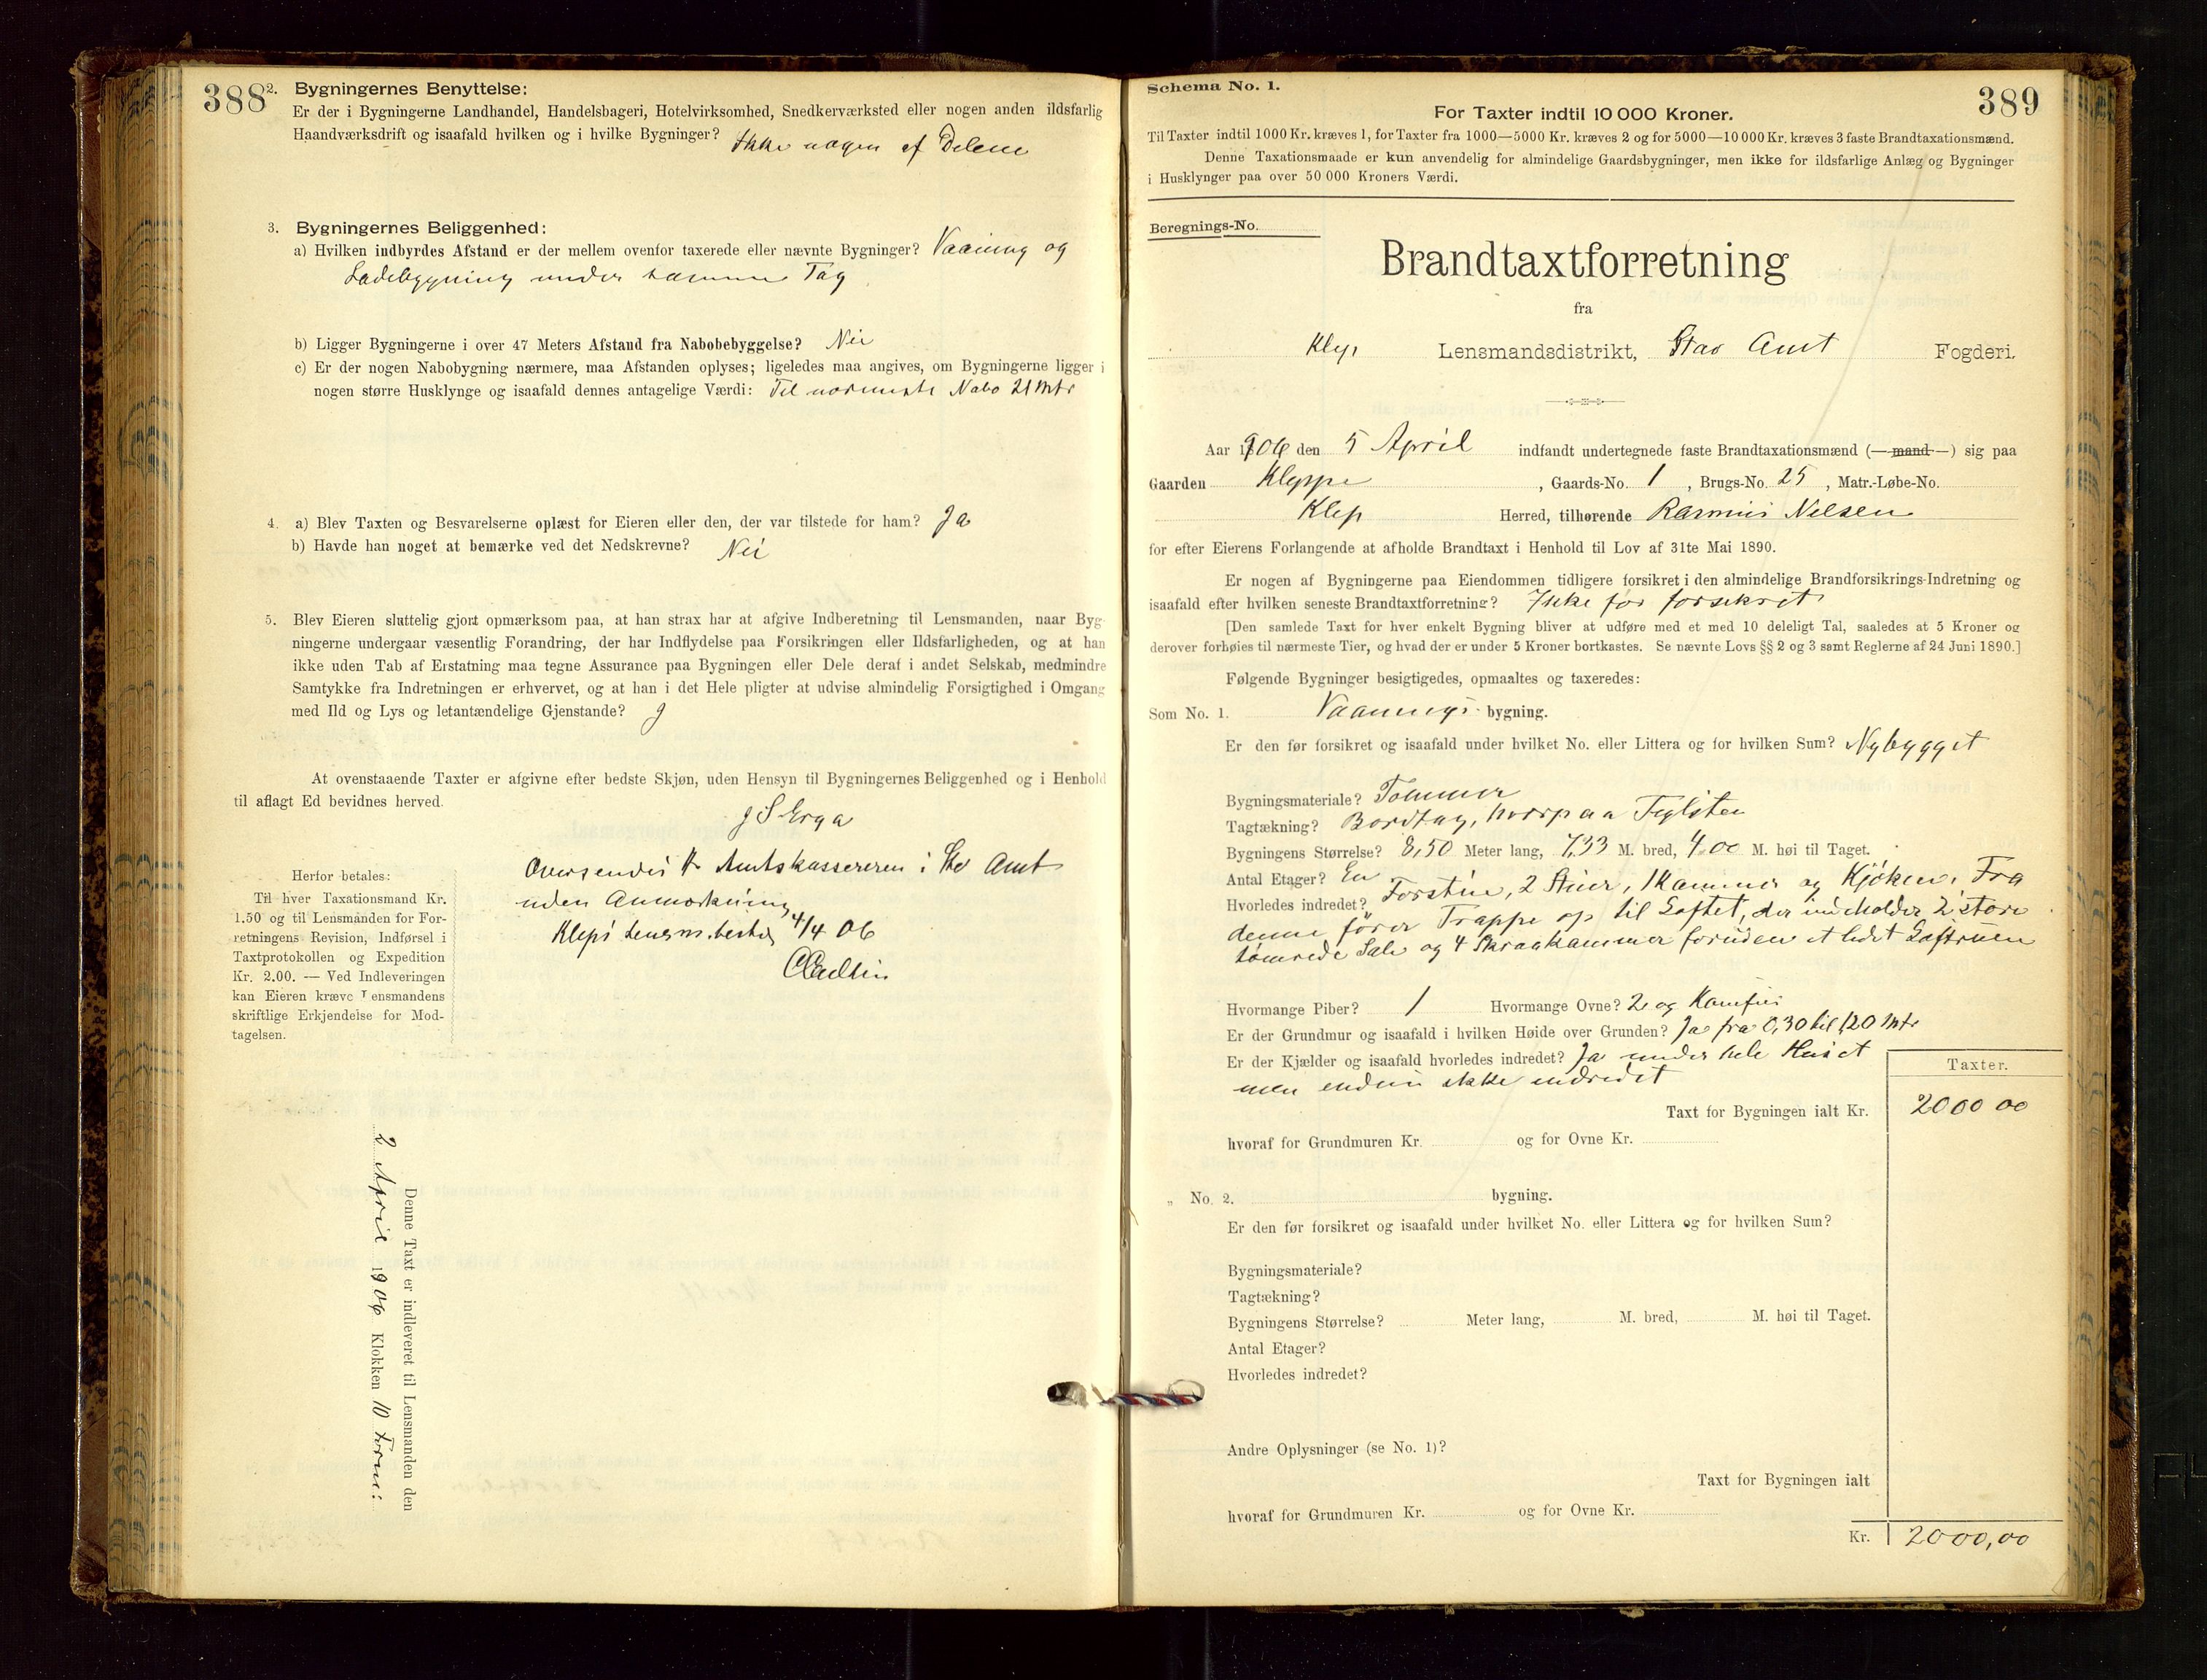 388
2. Bygningernes Benyttelse:
Er der i Bygningerne Landhandel, Handelsbageri, Hotelvirksomhed, Snedkerværksted eller nogen anden ildsfarlig
Haandværksdrift og isaafald hvilken og i hvilke Bygninger? Ikke nogen af Delene
3. Bygningernes Beliggenhed:
a) Hvilken indbyrdes Afstand er der mellem ovenfor taxerede eller nævnte Bygninger? Vaaning og
Ladebygning under samme Tag
b) Ligger Bygningerne i over 47 Meters Afstand fra Nabobebyggelse? Nei
c) Er der nogen Nabobygning nærmere, maa Afstanden oplyses; ligeledes maa angives, om Bygningerne ligger i
nogen større Husklynge og isaafald dennes antagelige Værdi: Til nærmeste Nabo 21 Mtr
4. a) Blev Taxten og Besvarelserne oplæst for Eieren eller den, der var tilstede for ham? Ja
b) Havde han noget at bemærke ved det Nedskrevne? Nei
5. Blev Eieren sluttelig gjort opmærksom paa, at han strax har at afgive Indberetning til Lensmanden, naar Byg-
ningerne undergaar væsentlig Forandring, der har Indflydelse paa Forsikringen eller Ildsfarligheden, og at han
ikke uden Tab af Erstatning maa tegne Assurance paa Bygningen eller Dele deraf i andet Selskab, medmindre
Samtykke fra Indretningen er erhvervet, og at han i det Hele pligter at udvise almindelig Forsigtighed i Omgang
med Ild og Lys og letantændelige Gjenstande? J
At ovenstaaende Taxter er afgivne efter bedste Skjøn, uden Hensyn til Bygningernes Beliggenhed og i Henhold
til aflagt Ed bevidnes herved.
J S Erga
Oversendes Hr Amtskassereren i Stv Amt
uden Anmærkning
Kleps Lensm.bestil 4/4 06
Herfor betales:
Til hver Taxationsmand Kr.
1.50 og til Lensmanden for For-
retningens Revision, Indførsel i
Taxtprotokollen og Expedition
Kr. 2.00. — Ved Indleveringen
kan Eieren kræve Lensmandens
skriftlige Erkjendelse for Mod-
tagelsen.
Denne Taxt er indleveret til Lensmanden den
2 April 1906 Klokken 10 Form:
Schema No. 1.
389
For Taxter indtil 10 000 Kroner.
Til Taxter indtil 1000 Kr. kræves 1, for Taxter fra 1000—5000 Kr. kræves 2 og for 5000—10 000 Kr. kræves 3 faste Brandtaxationsmænd.
Denne Taxationsmaade er kun anvendelig for almindelige Gaardsbygninger, men ikke for ildsfarlige Anlæg og Bygninger
i Husklynger paa over 50 000 Kroners Værdi.
Beregnings-No.
Brandtaxtforretning
fra
Klep Lensmandsdistrikt, Stav Amt Fogderi.
Aar 1906 den 5 April indfandt undertegnede faste Brandtaxationsmænd (—mand—) sig paa
Gaarden Kleppe, Gaards-No. 1, Brugs-No. 25, Matr.-Løbe-No.
Klep Herred, tilhørende Rasmus Nelsen
for efter Eierens Forlangende at afholde Brandtaxt i Henhold til Lov af 31te Mai 1890.
Er nogen af Bygningerne paa Eiendommen tidligere forsikret i den almindelige Brandforsikrings-Indretning og
isaafald efter hvilken seneste Brandtaxtforretning? Ikke før forsikret
[Den samlede Taxt for hver enkelt Bygning bliver at udføre med et med 10 deleligt Tal, saaledes at 5 Kroner og
derover forhøies til nærmeste Tier, og hvad der er under 5 Kroner bortkastes. Se nævnte Lovs §§ 2 og 3 samt Reglerne af 24 Juni 1890.]
Følgende Bygninger besigtigedes, opmaaltes og taxeredes:
Som No. 1. Vaanings bygning.
Er den før forsikret og isaafald under hvilket No. eller Littera og for hvilken Sum? Nybygget
Bygningsmateriale? Tømmer
Tagtækning? Bordtag, hvorpaa Teglsten
Bygningens Størrelse? 8,50 Meter lang, 7,33 M. bred, 4,00 M. høi til Taget.
Antal Etager? En
Hvorledes indredet? Forstue, 2 Stuer, 1 Kammer og Kjøken. Fra
denne fører Trappe op til Loftet, der indeholder 2 store
tømrede Sale og 4 Skraakammer foruden et lidet Loftsrum
Hvormange Piber? 1 Hvormange Ovne? 2 og Komfur
Er der Grundmur og isaafald i hvilken Høide over Grunden? Ja fra 0,30 til 1,20 Mtr
Er der Kjælder og isaafald hvorledes indredet? Ja under hele Huset
men endnu ikke indredet
Taxter.
Taxt for Bygningen ialt Kr. 2000 00
hvoraf for Grundmuren Kr. og for Ovne Kr.
„ No. 2. bygning.
Er den før forsikret og isaafald under hvilket No. eller Littera og for hvilken Sum?
Bygningsmateriale?
Tagtækning?
Bygningens Størrelse? Meter lang, M. bred, M. høi til Taget.
Antal Etager?
Hvorledes indredet?
Andre Oplysninger (se No. 1)?
Taxt for Bygningen ialt
hvoraf for Grundmuren Kr. og for Ovne Kr.
Kr. 2000,00